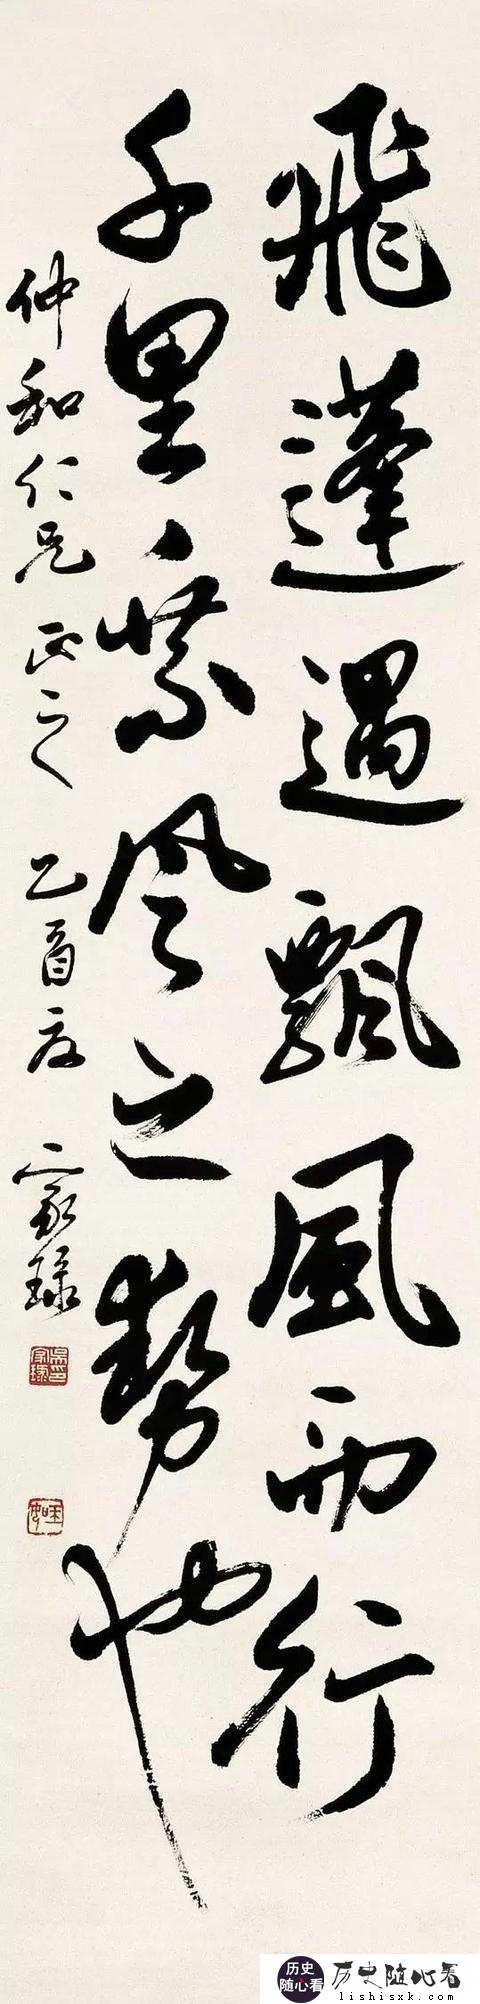 飛蓬遇飄風而行
千里乘風之勢也
仲和仁兄正之 乙酉夏 家琭
吳印家琭
历史
随心看
历史随心看
lishisxk.com